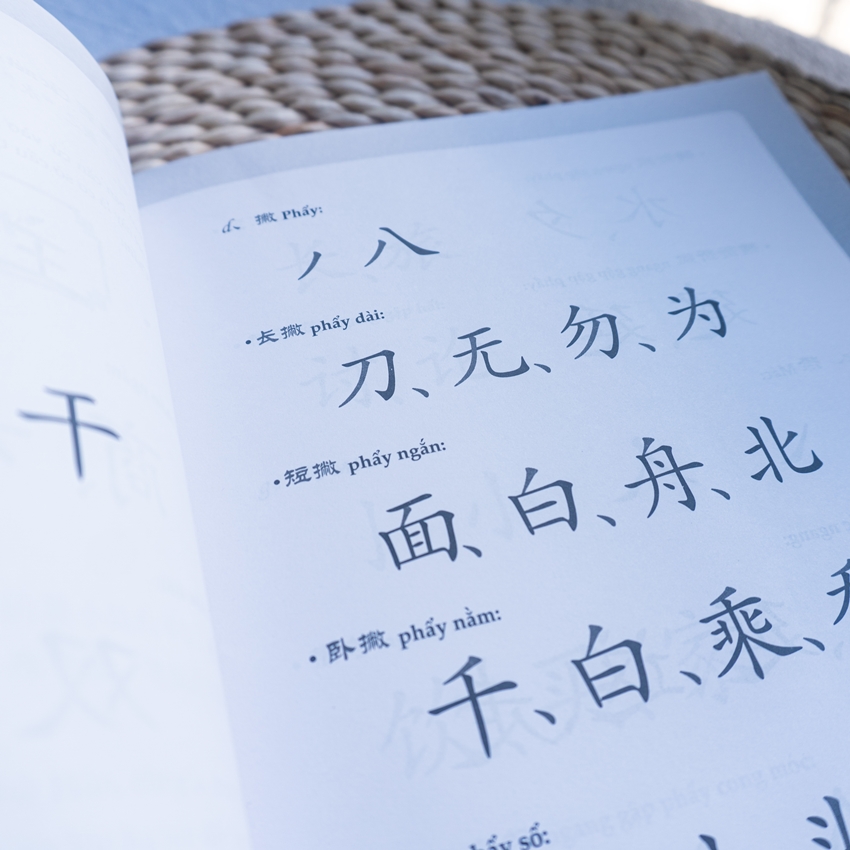 干
d、撇 Phẩy:
丿 八
• 长撇 phẩy dài:
刀、无、勿、为
• 短撇 phẩy ngắn:
面、白、舟、北
• 卧撇 phẩy nằm:
千、白、乘、
phẩy sổ: